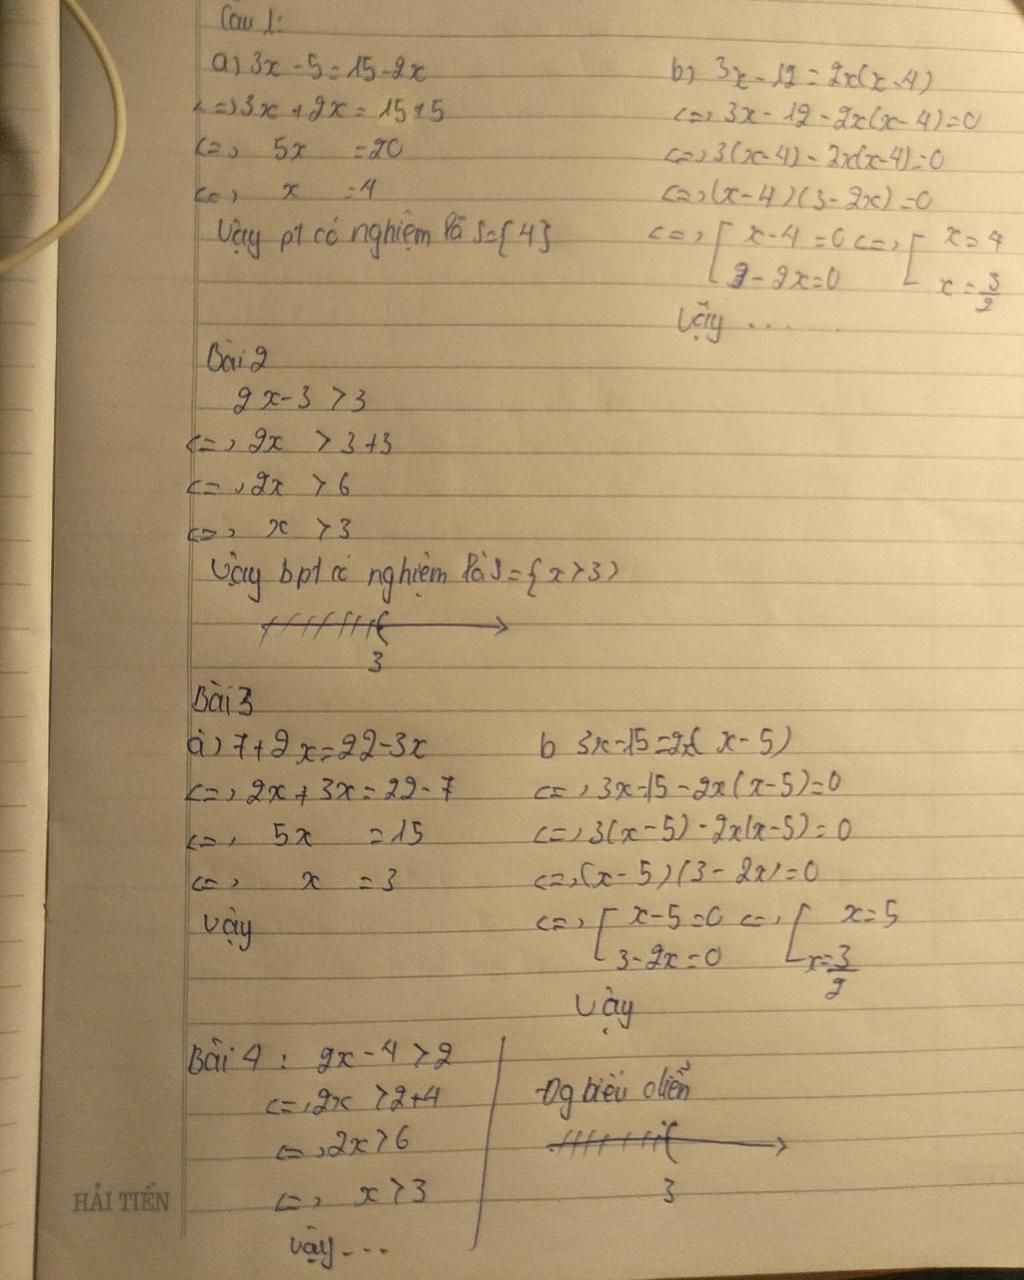 Câu 1:
a) 3x - 5 = 15 - 2x
<=> 3x + 2x = 15 + 5
<=> 5x = 20
<=> x = 4
Vậy pt có nghiệm là S = {4}
b) 3x - 12 = 2x(x - 4)
<=> 3x - 12 - 2x(x - 4) = 0
<=> 3(x - 4) - 2x(x - 4) = 0
<=> (x - 4)(3 - 2x) = 0
<=> [ x - 4 = 0 <=> [ x = 4
3 - 2x = 0 x = 3/2
Vậy ....
Bài 2
2x - 3 > 3
<=> 2x > 3 + 3
<=> 2x > 6
<=> x > 3
Vậy bpt có nghiệm là S = {x > 3}
3
Bài 3
a) 7 + 2x = 22 - 3x
<=> 2x + 3x = 22 - 7
<=> 5x = 15
<=> x = 3
Vậy
b 3x - 15 = 2x( x - 5)
<=> 3x - 15 - 2x(x - 5) = 0
<=> 3(x - 5) - 2x(x - 5) = 0
<=> (x - 5)(3 - 2x) = 0
<=> [ x - 5 = 0 <=> [ x = 5
3 - 2x = 0 x = 3/2
Vậy
Bài 4 : 2x - 4 > 2
<=> 2x > 2 + 4
<=> 2x > 6
<=> x > 3
Vậy ...
Đg biểu diễn
3
HẢI TIẾN